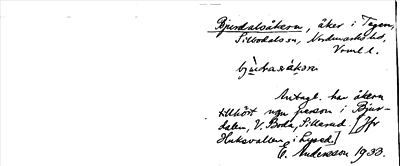 Bjurdalsåkern, åker i Tegen,
Sillbodals sn, Nordmarks hd,
Vrml l.
Antagl. har åkern
tillhört ngn person i Bjur-
dalen, V. Boda, Sillerud [Jfr
Huksvallen, i Lysed.]
E. Andersson 1933.